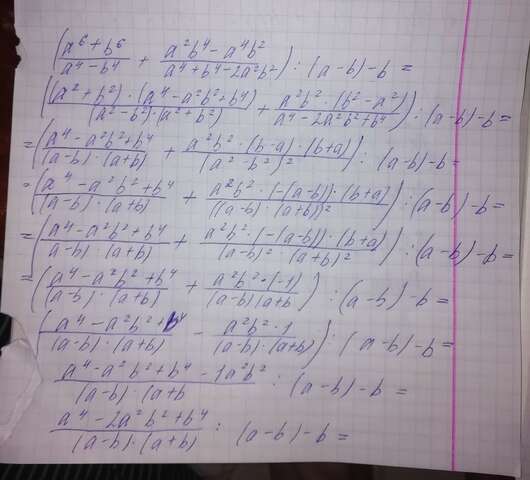 (a⁶+b⁶/a⁴-b⁴ + a²b⁴-a⁴b²/a⁴+b⁴-2a²b²) : (a-b)-b =
((a²+b²)·(a⁴-a²b²+b⁴)/(a²-b²)·(a²+b²) + a²b²·(b²-a²)/a⁴-2a²b²+b⁴) : (a-b)-b=
=(a⁴-a²b²+b⁴/(a-b)·(a+b) + a²b²·(b-a)·(b+a)/(a²-b²)²) : (a-b)-b=
=(a⁴-a²b²+b⁴/(a-b)·(a+b) + a²b²·(-(a-b))·(b+a)/((a-b)·(a+b))²) : (a-b)-b=
=(a⁴-a²b²+b⁴/(a-b)·(a+b) + a²b²·(-(a-b))·(b+a)/(a-b)²·(a+b)²) : (a-b)-b=
=(a⁴-a²b²+b⁴/(a-b)·(a+b) + a²b²·(-1)/(a-b)(a+b) : (a-b)-b=
(a⁴-a²b²+b⁴/(a-b)·(a+b) - a²b²·1/(a-b)·(a+b)) : (a-b)-b=
a⁴-a²b²+b⁴-1a²b²/(a-b)·(a+b : (a-b)-b=
a⁴-2a²b²+b⁴/(a-b)·(a+b) : (a-b)-b=